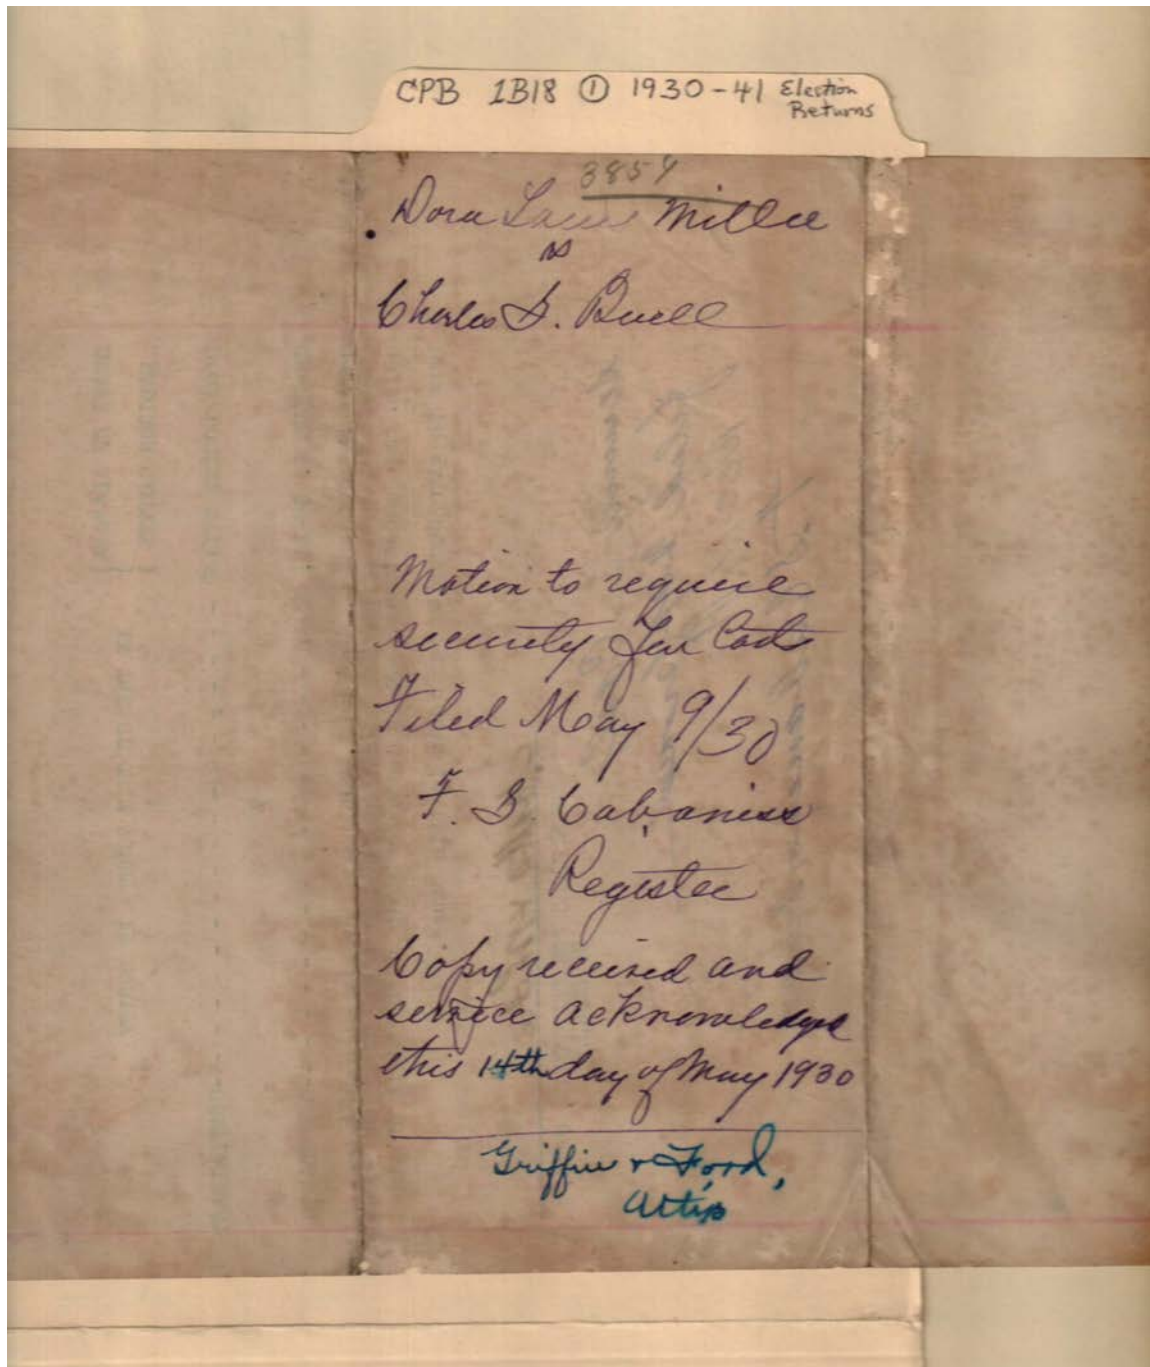 CPB 1B18 ① 1930-41 Election
Returns
3854
Dora Miller
vs
Charles S. Buell
Motion to require
security for Costs
Filed May 9/30
F. S. Cabaniss
Register
Copy received and
service acknowledged
this 14th day of May 1930
Griffin & Ford,
Attys